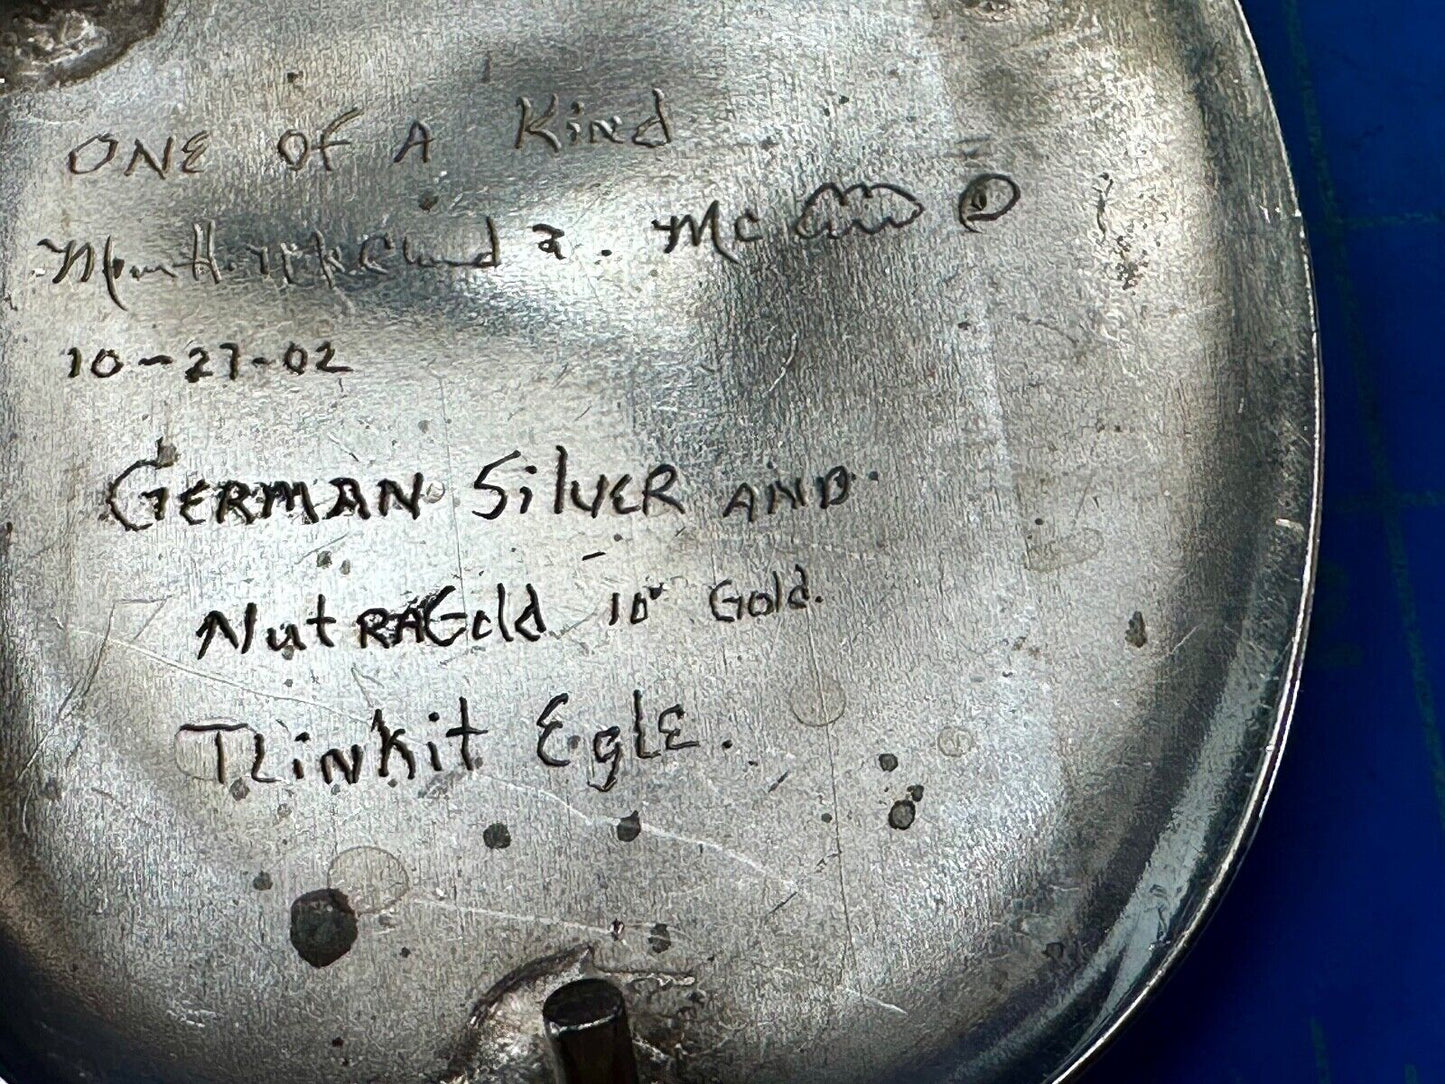 ONE OF A Kind
Mc
10-27-02
GERMAN SilvER AND
NutRAGold 10 Gold.
TLinkit EglE.